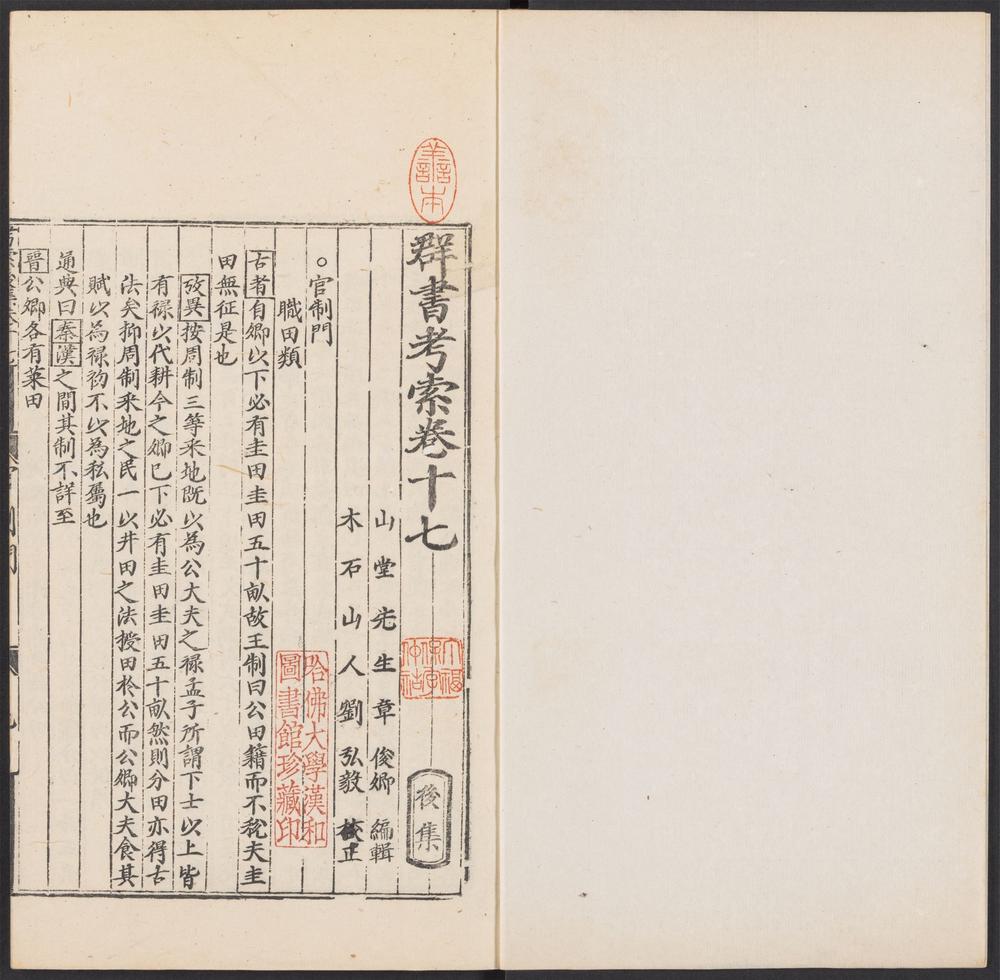 善本
群書考索卷十七
後集
山堂先生章俊卿編輯
木石山人劉弘毅校正
哈佛大學漢和
圖書館珍藏印
○官制門
職田類
古者自卿以下必有圭田圭田五十畝故王制曰公田籍而不稅夫圭
田無征是也
攷異按周制三等采地既以為公大夫之禄孟子所謂下士以上皆
有禄以代耕今之卿已下必有圭田圭田五十畝然則分田亦得古
法矣抑周制采地之民一以井田之法授田於公而公卿大夫食其
賦以為禄初不以為私屬也
通典曰秦漢之間其制不詳至
晉公卿各有菜田